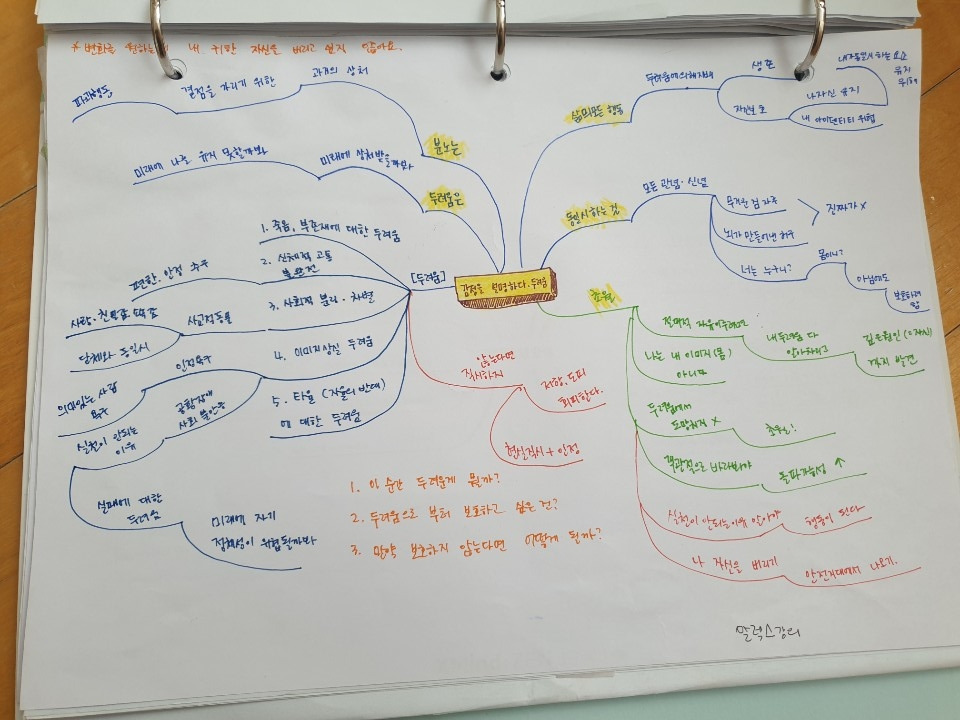 * 변화를 원하는 내 귀만 자신을 버리고 싶지 않아요.
파괴행동
결점을 가리기 위한
과거의 상처
분노는
미래에 나를 유지 못할까봐
미래에 상처받을까봐
두려움은
[두려움]
1. 죽음, 부존재에 대한 두려움
2. 신체적 고통
불완전
편안, 안정 추구
3. 사회적 분리 · 차별
사교적동물
사랑·친밀감·소속감
단체와 동일시
4. 이미지상실 두려움
인정욕구
의미있는 사람
욕구
공황장애
사회 불안증
5. 타율 (자율의 반대)
에 대한 두려움
실천이 안되는
이유
실패에 대한
두려움
미래에 자기
정체성이 위협될까봐
감정을 설명하다. 두려움
삶의모든 행동
두려움에의해지배
생존
자기보호
내가동일시 하는 요소
유지
위해
나자신 유지
내 아이덴티티 위협
동일시하는 것
모든 관념·신념
무거운 검 자루
뇌가 만들어낸 허구
진짜가 X
너는 누구니?
몸이니?
아님에도
보호하려
함
초월
절대적 자유이루려면
내 두려움 다
알아차리고
깊은원인
까지 발견
나는 내 이미지(몸)
아니다
두려움에서
도망치지 X
초월!
객관적으로 바라봐야
돌파가능성 ↑
실천이 안되는이유 알아야
행동이 된다
나 자신을 버리기
안전지대에서 나오기.
않는다면
직시하지
저항, 도피
회피한다.
현실직시 + 인정
1. 이 순간 두려운게 뭘까?
2. 두려움으로 부터 보호하고 싶은 건?
3. 만약 보호하지 않는다면 어떻게 될까?
알렉스강의